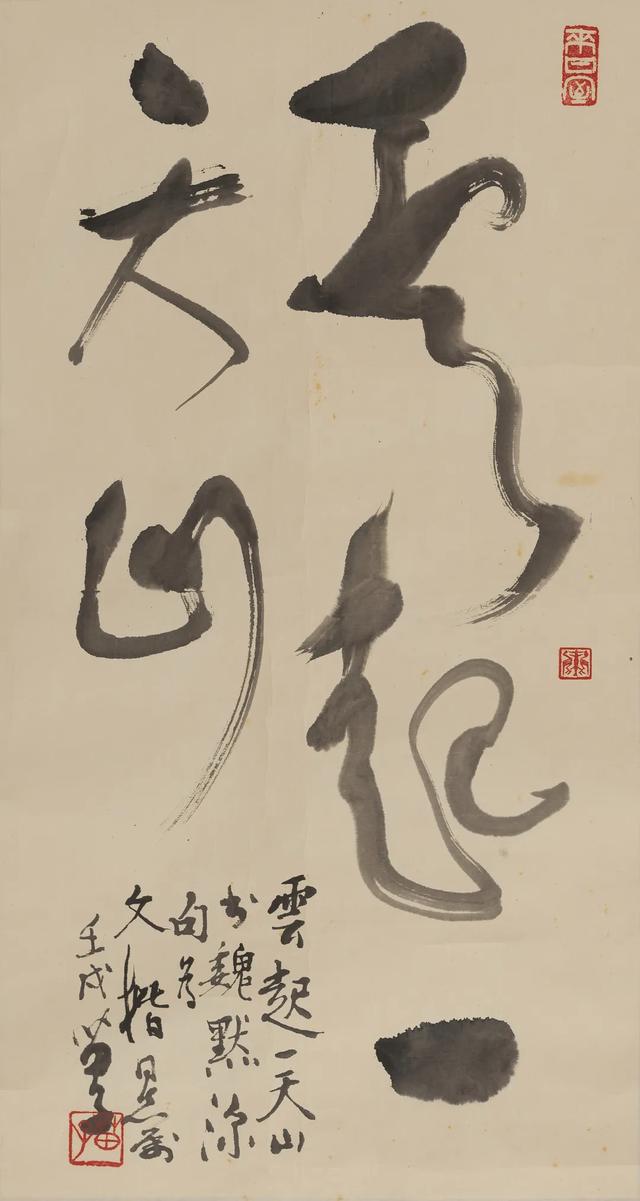 雲起一
天山
雲起一天山
书魏默深
句為
文楷
壬戌苗子